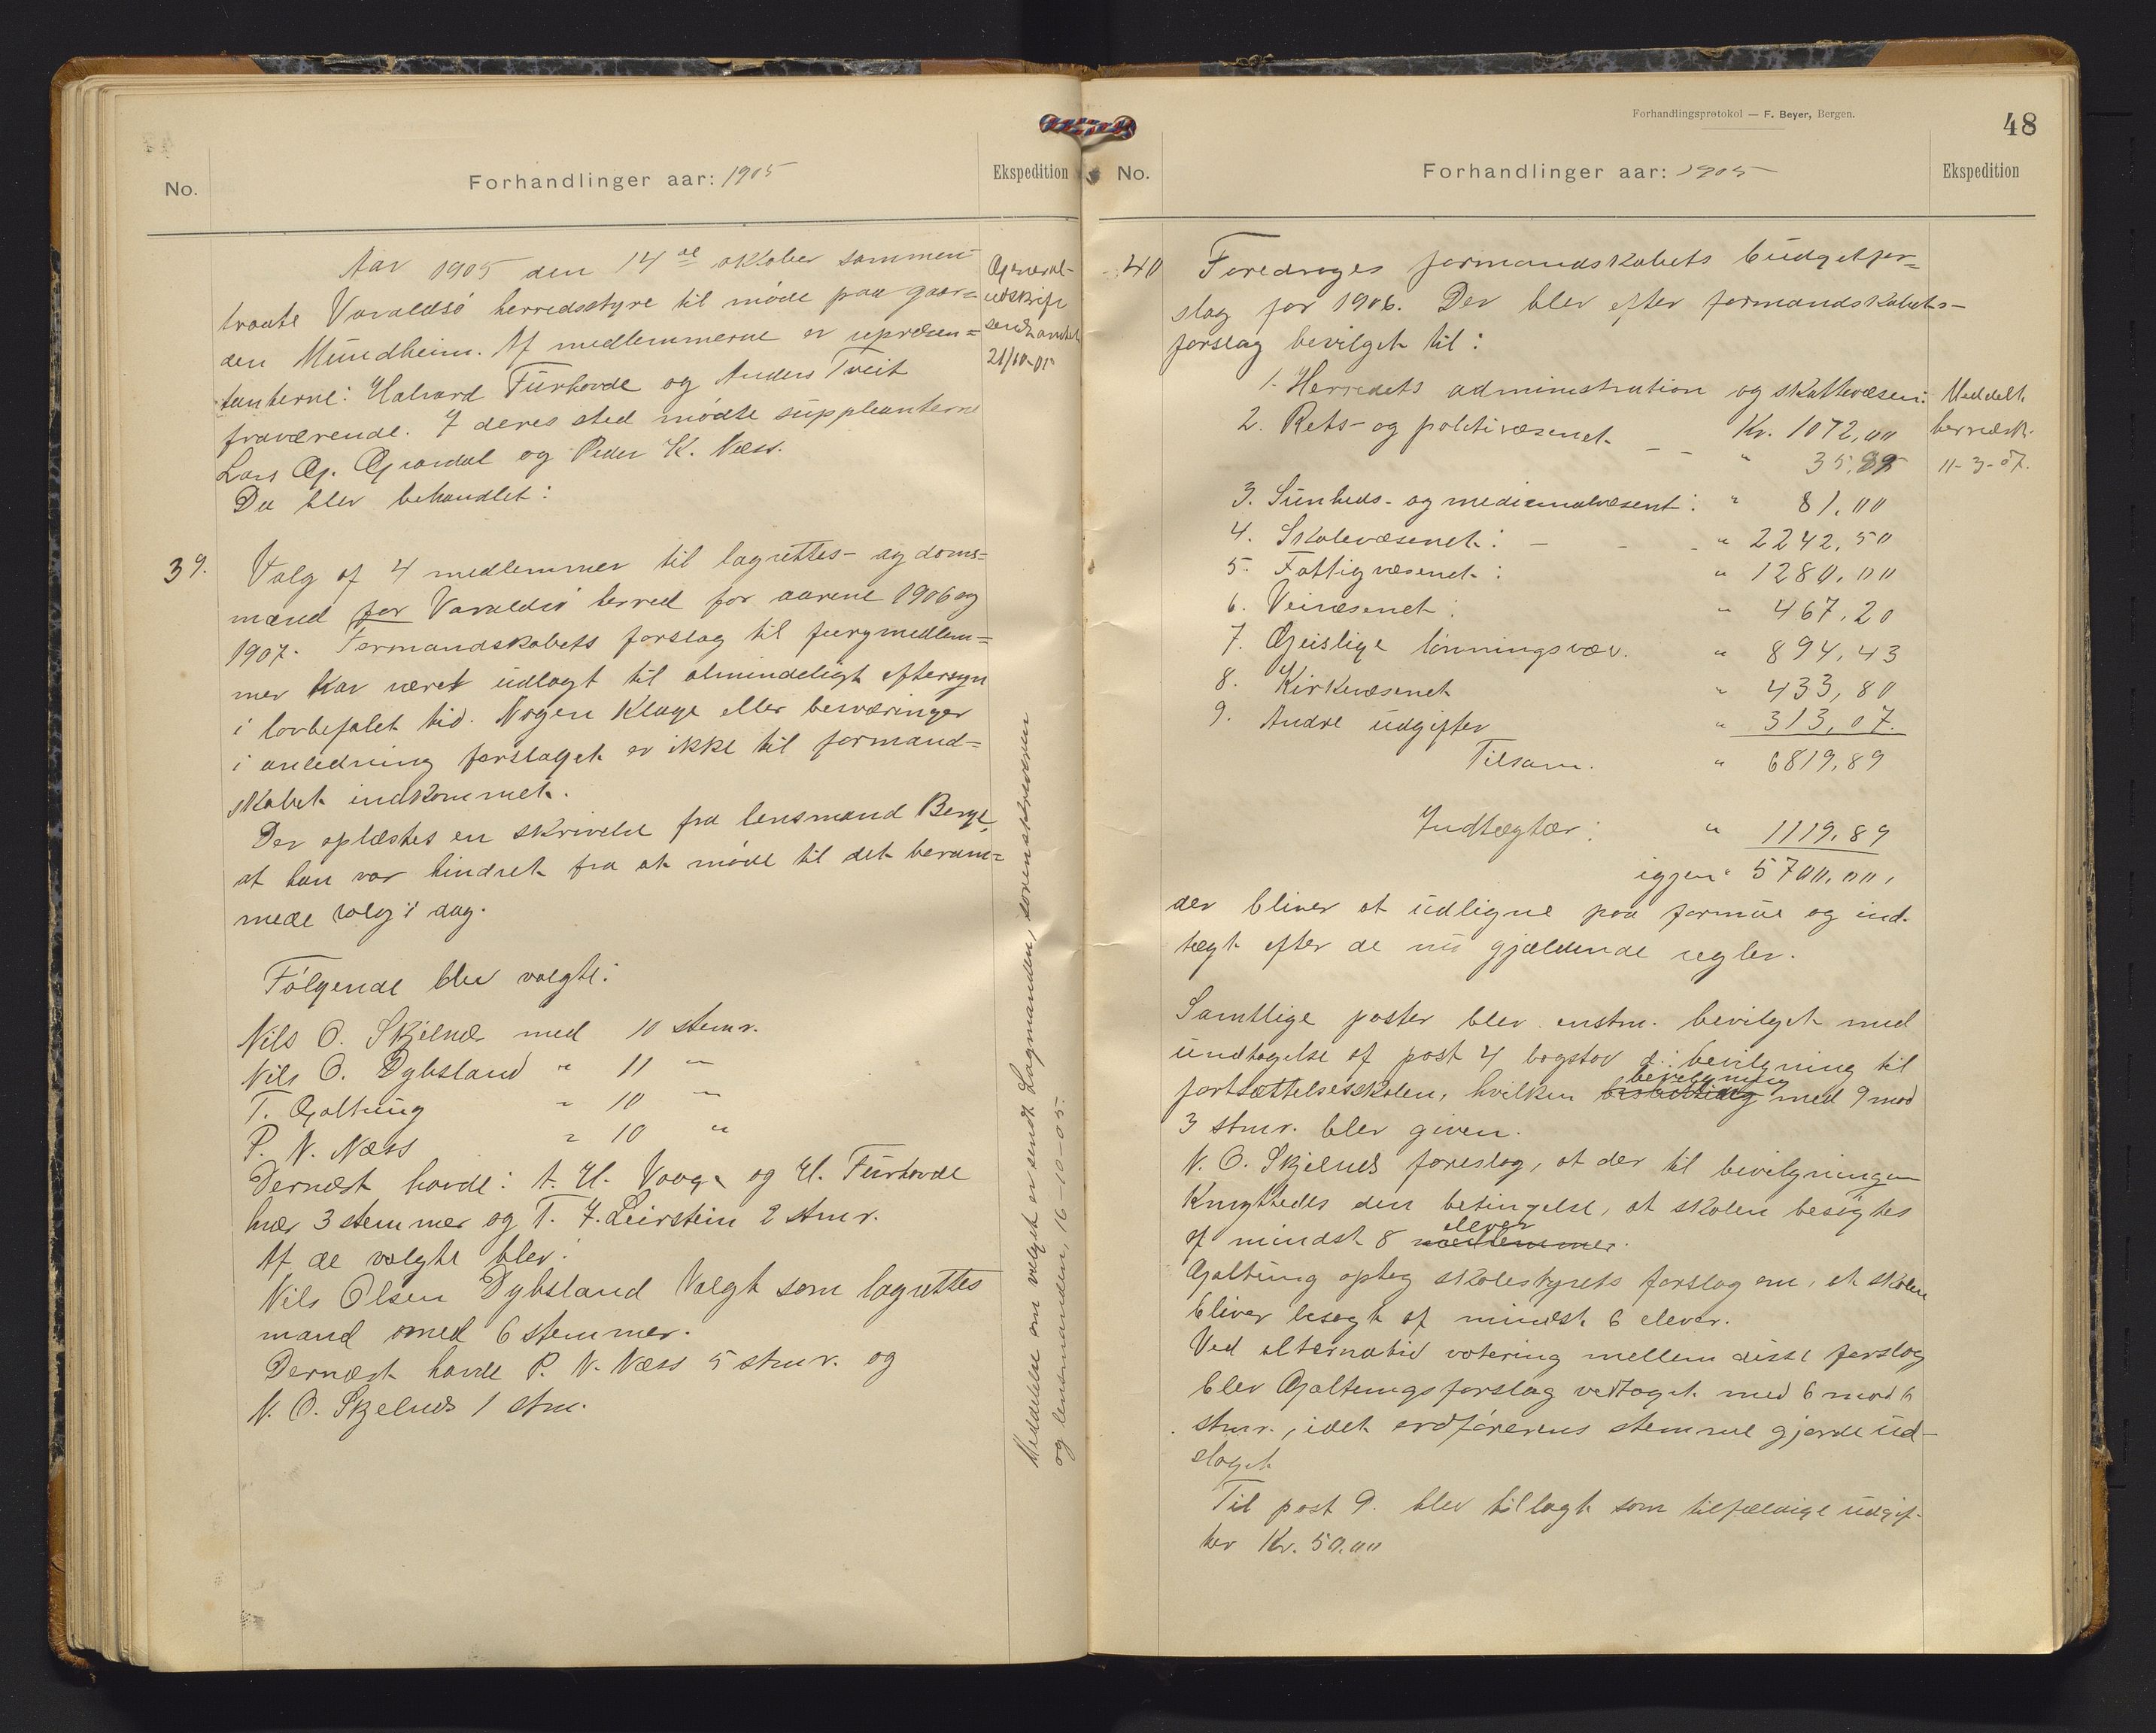 No.
Forhandlinger aar: 1905
Ekspedition
Aar 1905 den 14de oktober sammen-
traate Varaldsö herredsstyre til möde paa gaar=
den Mundheim. Af medlemmerne er repræsen=
tanterne: Halvard Furhovde og Anders Tveit
fraværende. I deres sted mödte suppleanterne
Lars G. Gravdal og Peder K. Næss.
Da blev behandlet:
General-
udskrift
sendt amtet
21/10-05
39.
Valg af 4 medlemmer til lagrettes- og doms=
mænd for Varaldsö herred for aarene 1906 og
1907. Formandskabets forslag til jurymedlem=
mer har været udlagt til almindeligt eftersyn
i lovbefalet tid. Nogen klage eller besværinger
i anledning forslaget er ikke til formand=
skabet indkommet.
Der oplæstes en skrivelse fra lensmand Berge,
at han var hindret fra at möde til det beram=
mede valg i dag.
Fölgende blev valgte:
Nils O. Skjelnes med 10 stemr.
Nils O. Dybsland " 11 "
T. Galtung " 10 "
P. N. Næss " 10 "
Dernæst havde: A. H. Vaage og H. Furhovde
hver 3 stemmer og T. J. Leirstein 2 stmr.
Af de valgte blev:
Nils Olsen Dybsland valgt som lagrettes
mand med 6 stemmer.
Dernæst havde P. N. Næss 5 stmr. og
N. O. Skjelnes 1 stm.
Meddelelse om valget er sendt Lagmanden, sorenskriveren
og lensmanden, 16-10-05.
Forhandlingsprotokol — F. Beyer, Bergen.
48
No.
Forhandlinger aar: 1905
Ekspedition
40
Foredroges formandskabets budgetfor=
slag for 1906. Der blev efter formandskabets-
forslag bevilget til:
1. Herredets administration og skattevæsen:
Kr. 1072,00
2. Rets- og politivæsenet - - " 35,89
3. Sunheds- og medicinalvæsent: " 81,00
4. Skolevæsenet: - - " 2242,50
5. Fattigvæsenet: " 1280,00
6. Veivæsenet: " 467,20
7. Geislige lönningsvæv. " 894,43
8. Kirkevæsenet " 433,80
9. Andre udgifter " 313,07.
Tilsam. " 6819,89
Indtægter: " 1119,89
igjen " 5700,00,
Meddelt
herredsk.
11-3-07.
der bliver at udligne paa formue og ind-
tægt efter de nu gjældende regler.
Samtlige poster blev enstm. bevilget med
undtagelse af post 4 bogstav d: bevilgning til
fortsættelsesskolen, hvilken bevilgning med 9 mod
3 stmr. blev given.
N. O. Skjelnes foreslog, at der til bevilgningen
knyttedes den betingelse, at skolen besögtes
af mindst 8 medlemmer elever.
Galtung optog skolestyrets forslag om, at skolen
bliver besögt af mindst 6 elever.
Ved alternativ votering mellem disse forslag
blev Galtungs forslag vedtaget med 6 mod 6
stmr., idet ordförerens stemme gjorde ud-
slaget
Til post 9. blev tillagt som tilfældige udgif-
ter Kr. 50.00